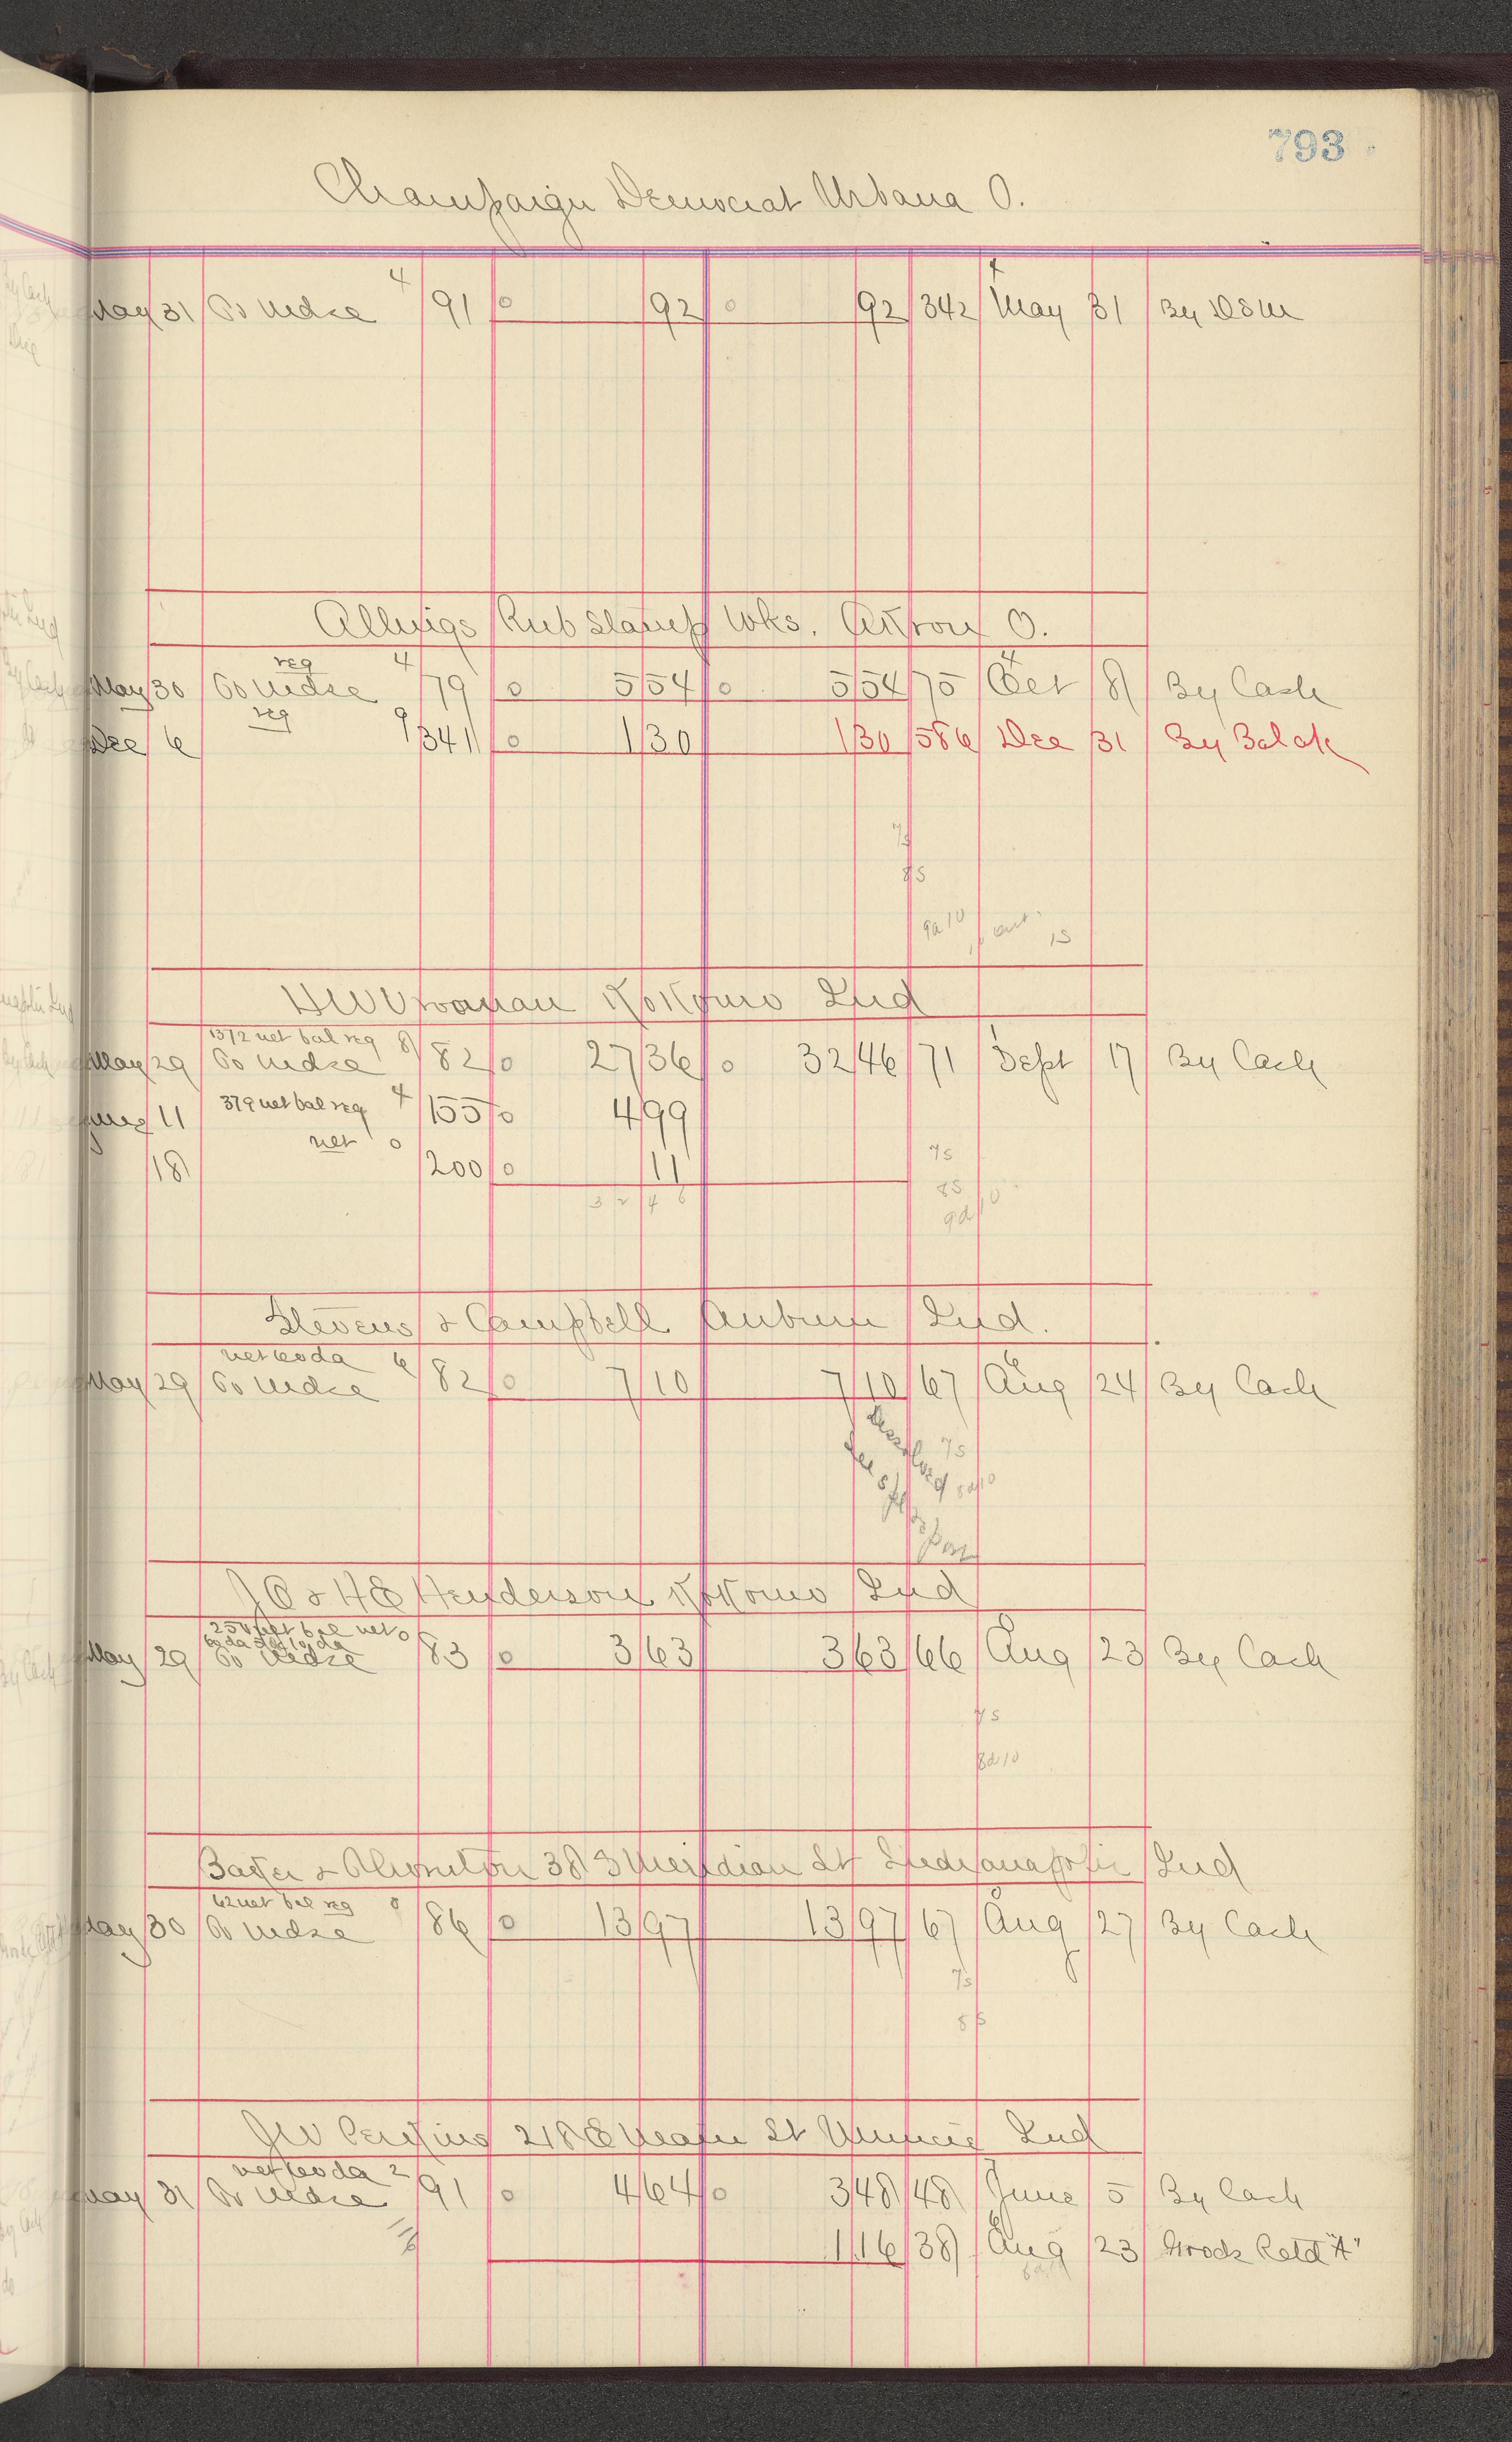 793
Champaign Democrat Urbana O.
May 31 To Mdse 4 91 0 92 0 92 342 May 31 By D & M
Allings Rub Stamp Wks. Akron O.
reg 4 4
May 30 To Mdse 79 0 5 54 0 5 54 75 Oct 8 By Cash
reg 9
Dec 6 341 0 1 30 1 30 586 Dec 31 By Bal a/c
75
85
9d10 15
H W Vrooman Kokomo Ind
1372 net bal reg 8
May 29 To Mdse 82 0 27 36 0 32 46 71 Sept 17 By Cash
379 net bal reg 4
11 155 0 4 99
net 0
18 200 0 11
75
85
32 46
9d10
Stevens & Campbell Auburn Ind.
net 60 da 6 6
May 29 To Mdse 82 0 7 10 7 10 67 Aug 24 By Cash
75
8d10
J O & H E Henderson Kokomo Ind
250 net bal net 0
60 da 10 da
May 29 To Mdse 83 0 3 63 3 63 66 Aug 23 By Cash
75
8d10
38 S Meridian St Indianapolis Ind
62 net bal reg 8
May 30 To Mdse 86 0 13 97 13 97 67 Aug 27 By Cash
75
85
J W Perkins 218 E Main St Muncie Ind
net 60 da 2
May 31 To Mdse 91 0 4 64 0 3 48 48 June 5 By Cash
1 16 38 Aug 23 Goods Retd "A"